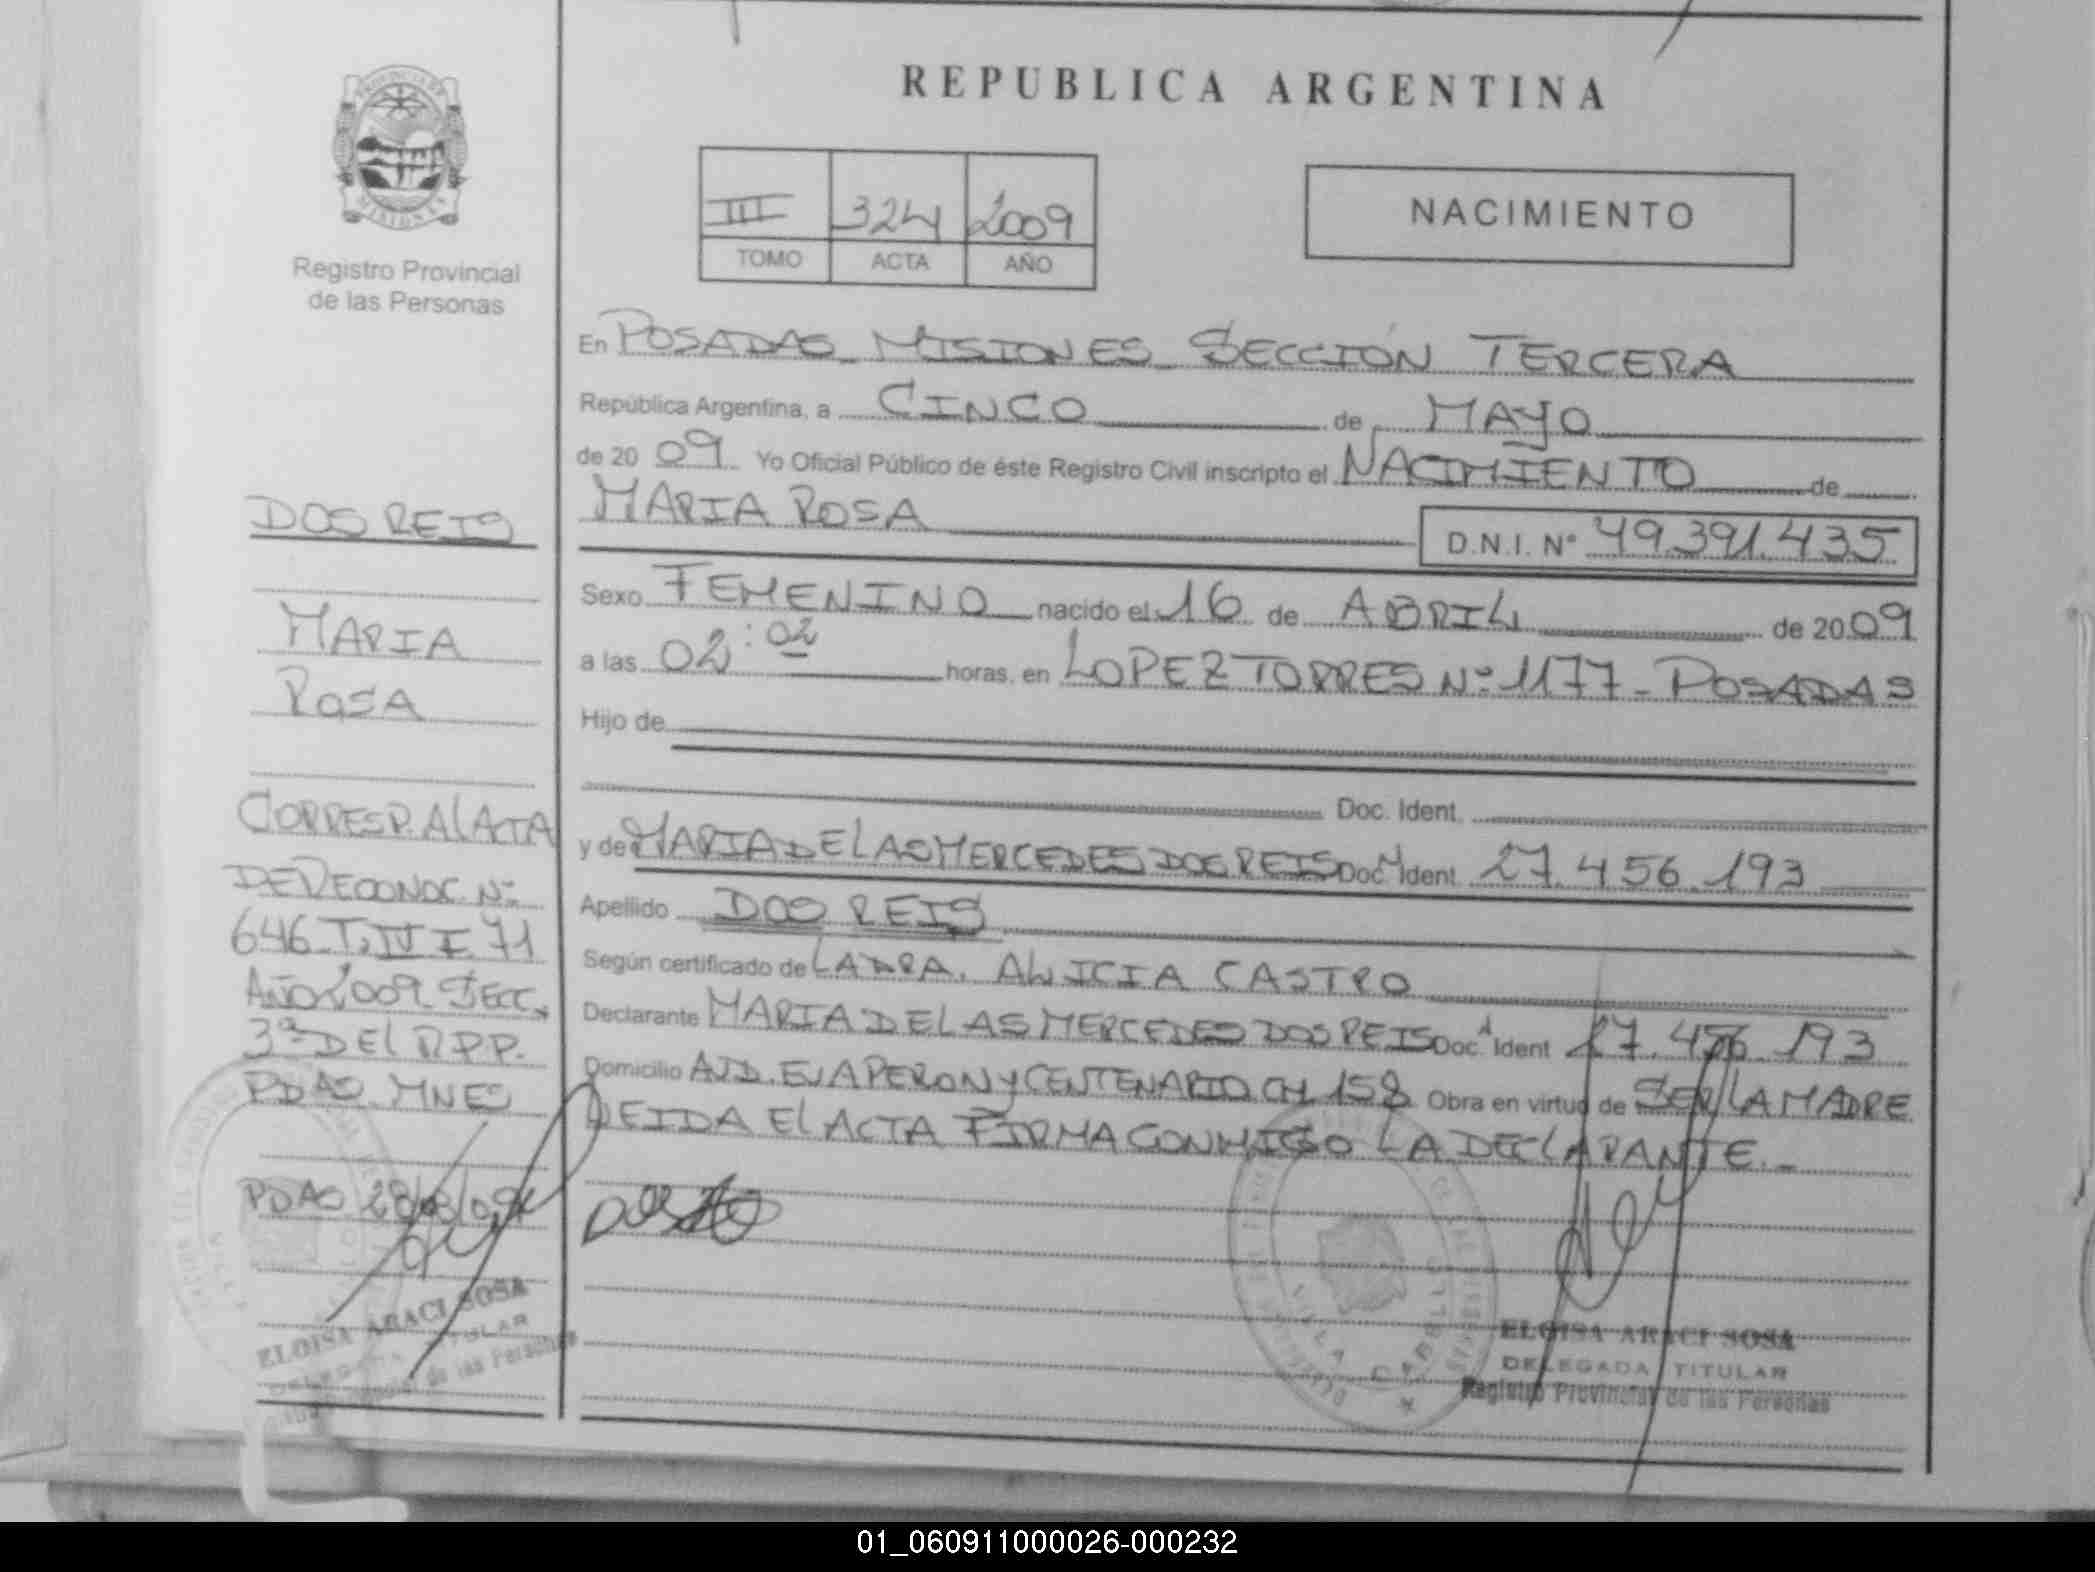 REPUBLICA ARGENTINA
PROVINCIA DE
MISIONES
Registro Provincial
de las Personas
III 324 2009
TOMO ACTA AÑO
NACIMIENTO
En POSADAS MISIONES SECCIÓN TERCERA
República Argentina, a CINCO de MAYO
de 20 09 Yo Oficial Público de éste Registro Civil inscripto el NACIMIENTO de
MARIA ROSA
D.N.I. Nº 49.391.435
Sexo FEMENINO nacido el 16 de ABRIL de 20 09
a las 02:02 horas, en LOPEZ TORRES Nº 1177 - POSADAS
Hijo de
Doc. Ident.
y de MARIA DE LAS MERCEDES DOS REIS Doc. Ident. 27.456.193
Apellido DOS REIS
Según certificado de LA DRA. ALICIA CASTRO
Declarante MARIA DE LAS MERCEDES DOS REIS Doc. Ident 27.456.193
Domicilio AVD. EVA PERON Y CENTENARIO CH 158 Obra en virtud de SER LA MADRE
LEIDA EL ACTA FIRMA CONMIGO LA DECLARANTE.-
ELOISA ARACI SOSA
DELEGADA TITULAR
Registro Provincial de las Personas
DOS REIS
MARIA
ROSA
CORRESP. AL ACTA
DE RECONOC. Nº
646 T. IV F 71
AÑO 2009 SECC.
3ª DEL R.P.P.
PDAS. MNES
PDAS
ELOISA ARACI SOSA
DELEGADA TITULAR
Registro Provincial de las Personas
01_060911000026-000232